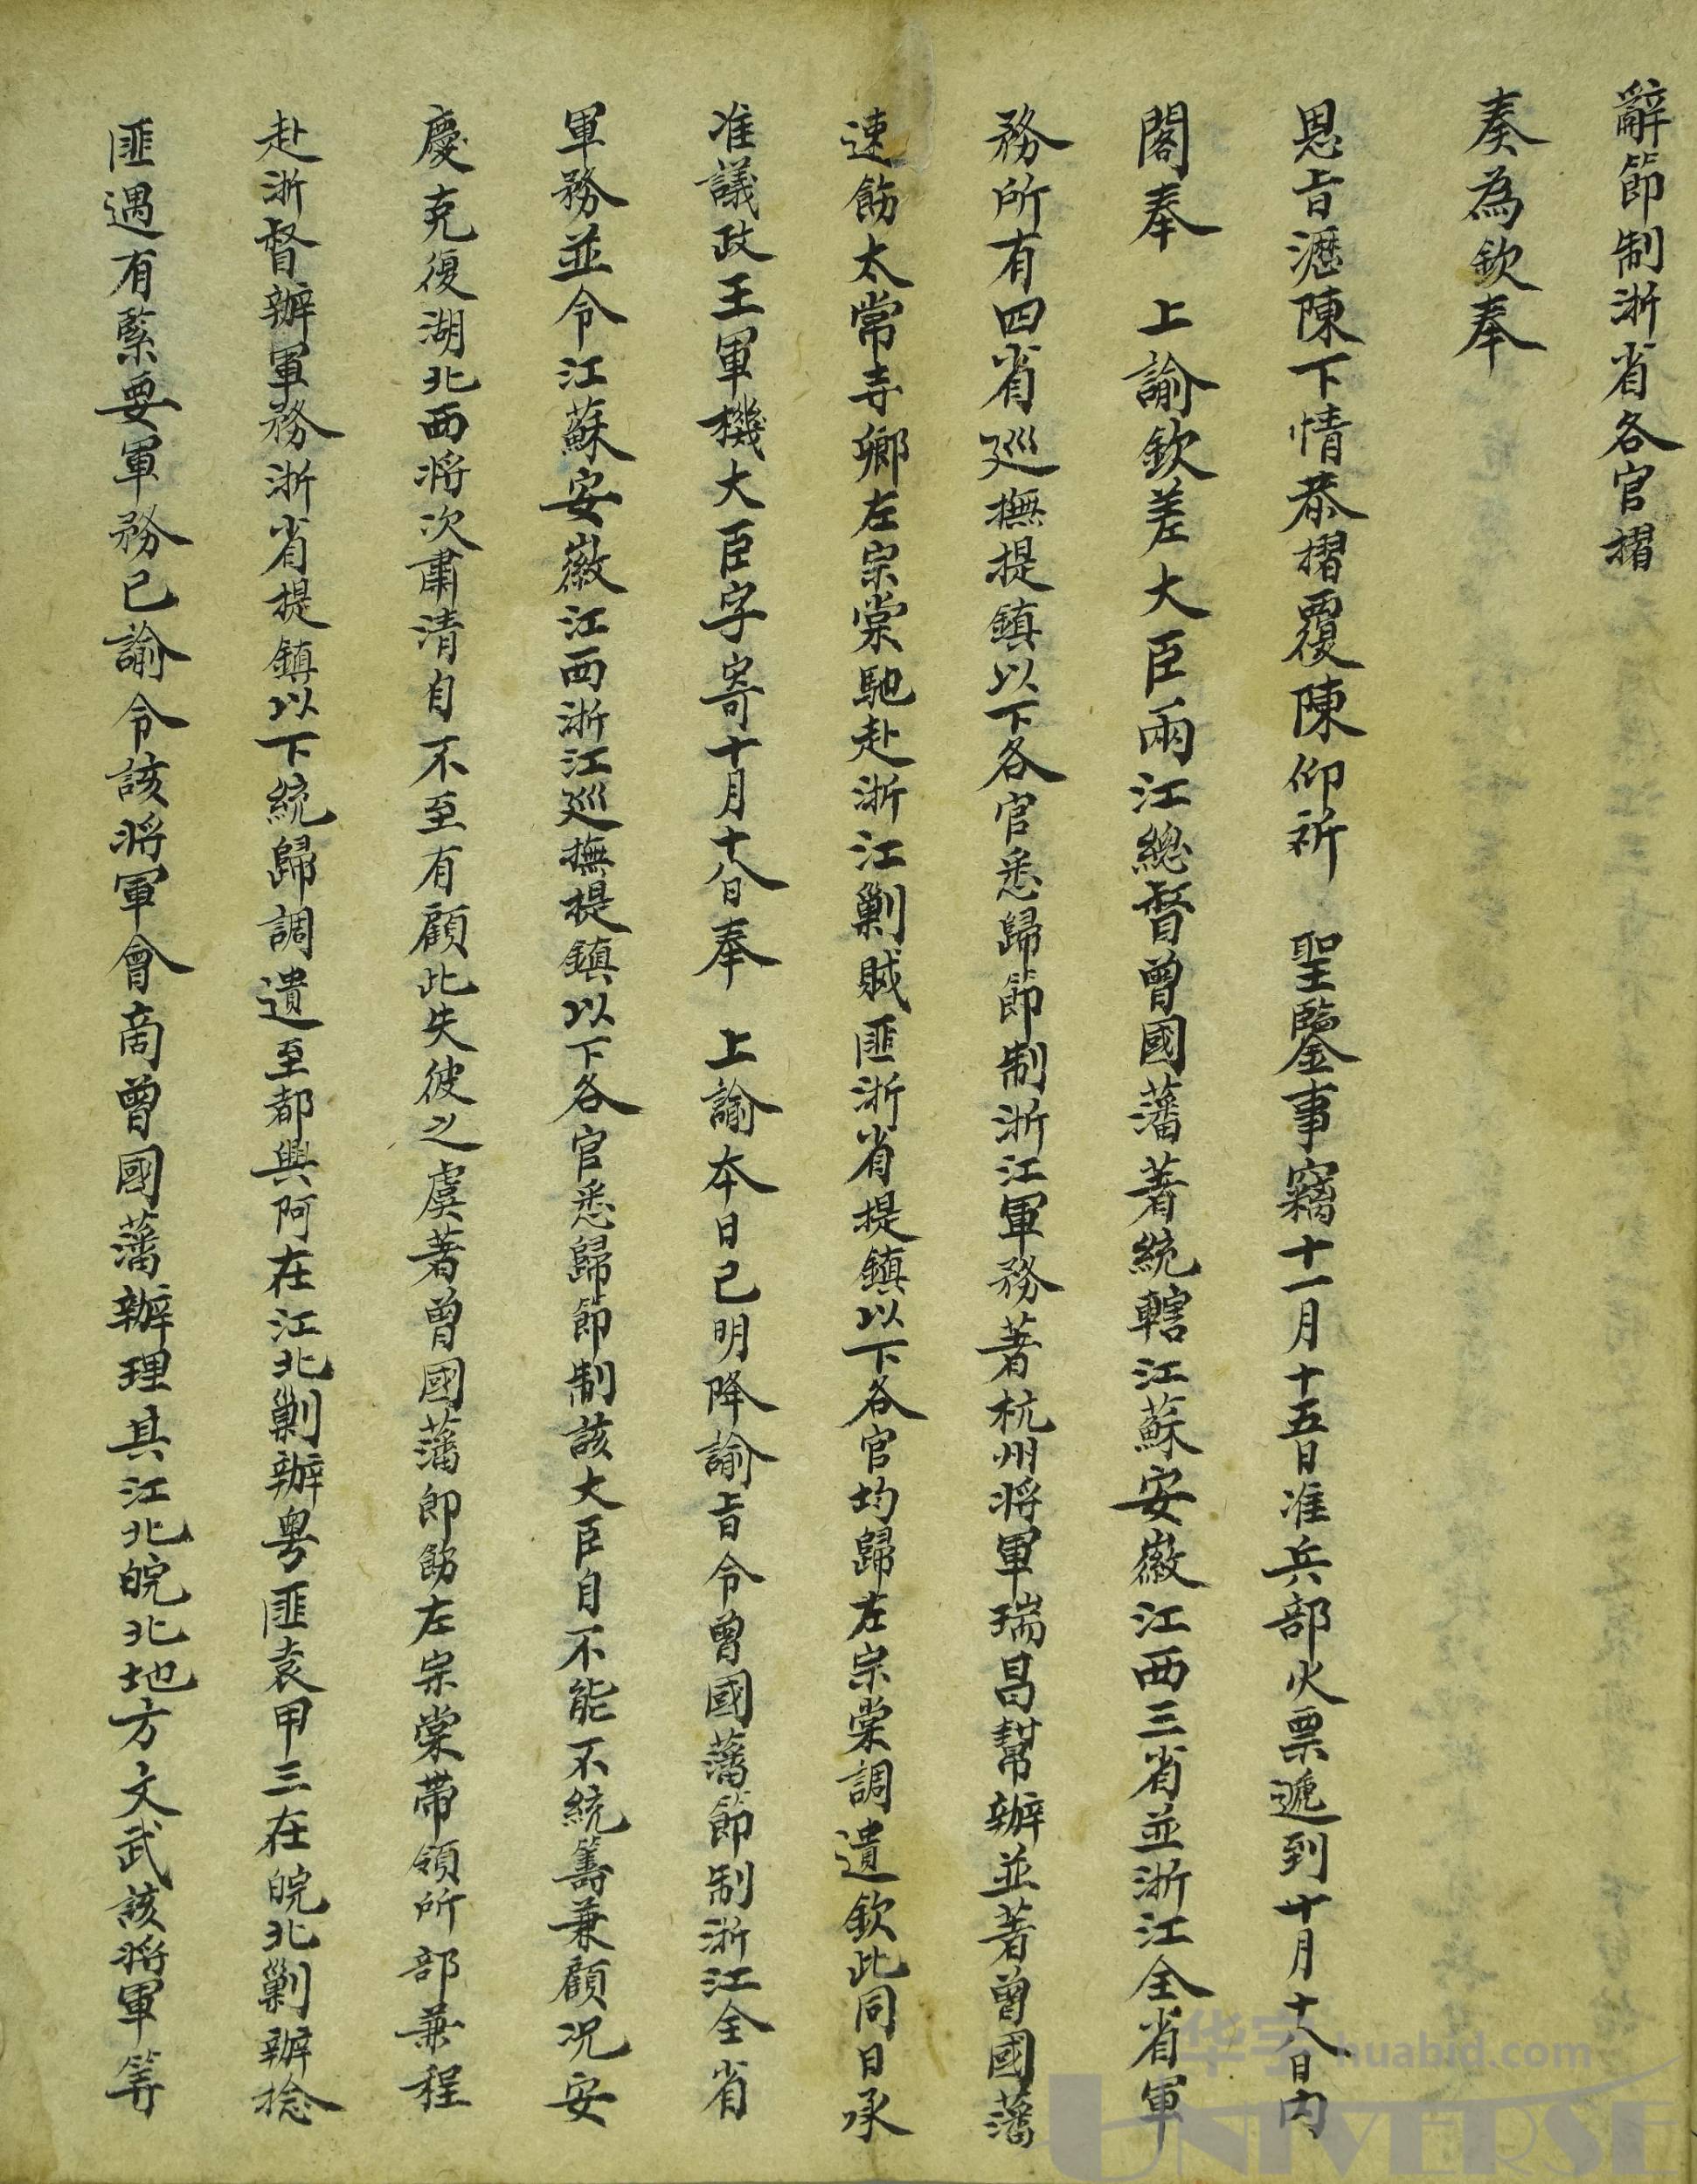 辭節制浙省各官摺
奏為欽奉
恩旨瀝陳下情恭摺覆陳仰祈 聖鑒事竊十一月十五日准兵部火票遞到十月十八日內
閣奉 上諭欽差大臣兩江總督曾國藩著統轄江蘇安徽江西三省並浙江全省軍
務所有四省巡撫提鎮以下各官悉歸節制浙江軍務著杭州將軍瑞昌幫辦並著曾國藩
速飭太常寺卿左宗棠馳赴浙江剿賊匪浙省提鎮以下各官均歸左宗棠調遣欽此同日承
准議政王軍機大臣字寄十月十八日奉 上諭本日已明降諭旨令曾國藩節制浙江全省
軍務並令江蘇安徽江西浙江巡撫提鎮以下各官悉歸節制該大臣自不能不統籌兼顧況安
慶克復湖北西將次肅清自不至有顧此失彼之虞著曾國藩即飭左宗棠帶領所部兼程
赴浙督辦軍務浙省提鎮以下統歸調遣至都興阿在江北剿辦粵匪袁甲三在皖北剿辦捻
匪遇有緊要軍務已諭令該將軍會商曾國藩辦理其江北皖北地方文武該將軍等
华宇 huabid.com
UNIVERSE